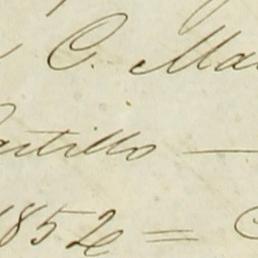 C. Ma
astillo —
1852 = C